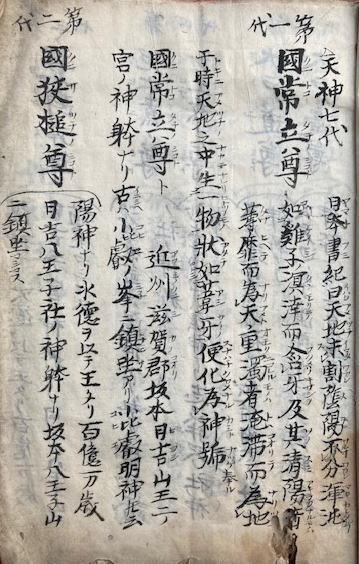 天神七代
第一代
國常立尊
日本書紀曰天地未割陰陽不分渾沌
如雞子溟涬而含牙及其清陽者
薄靡而為天重濁者淹滞而為地
于時天地之中生一物狀如葦牙便化為神號
國常立尊ト 近州滋賀郡坂本日吉山王二
宮ノ神躰ナリ古ハ小比叡ノ峯ニ鎮坐アリ小比叡明神ト云
第二代
國狹槌尊
陽神ナリ水德ヲ以テ王タリ百億一万歳
日吉八王子社ノ神躰ナリ坂本八王子山
ニ鎮坐マシマス